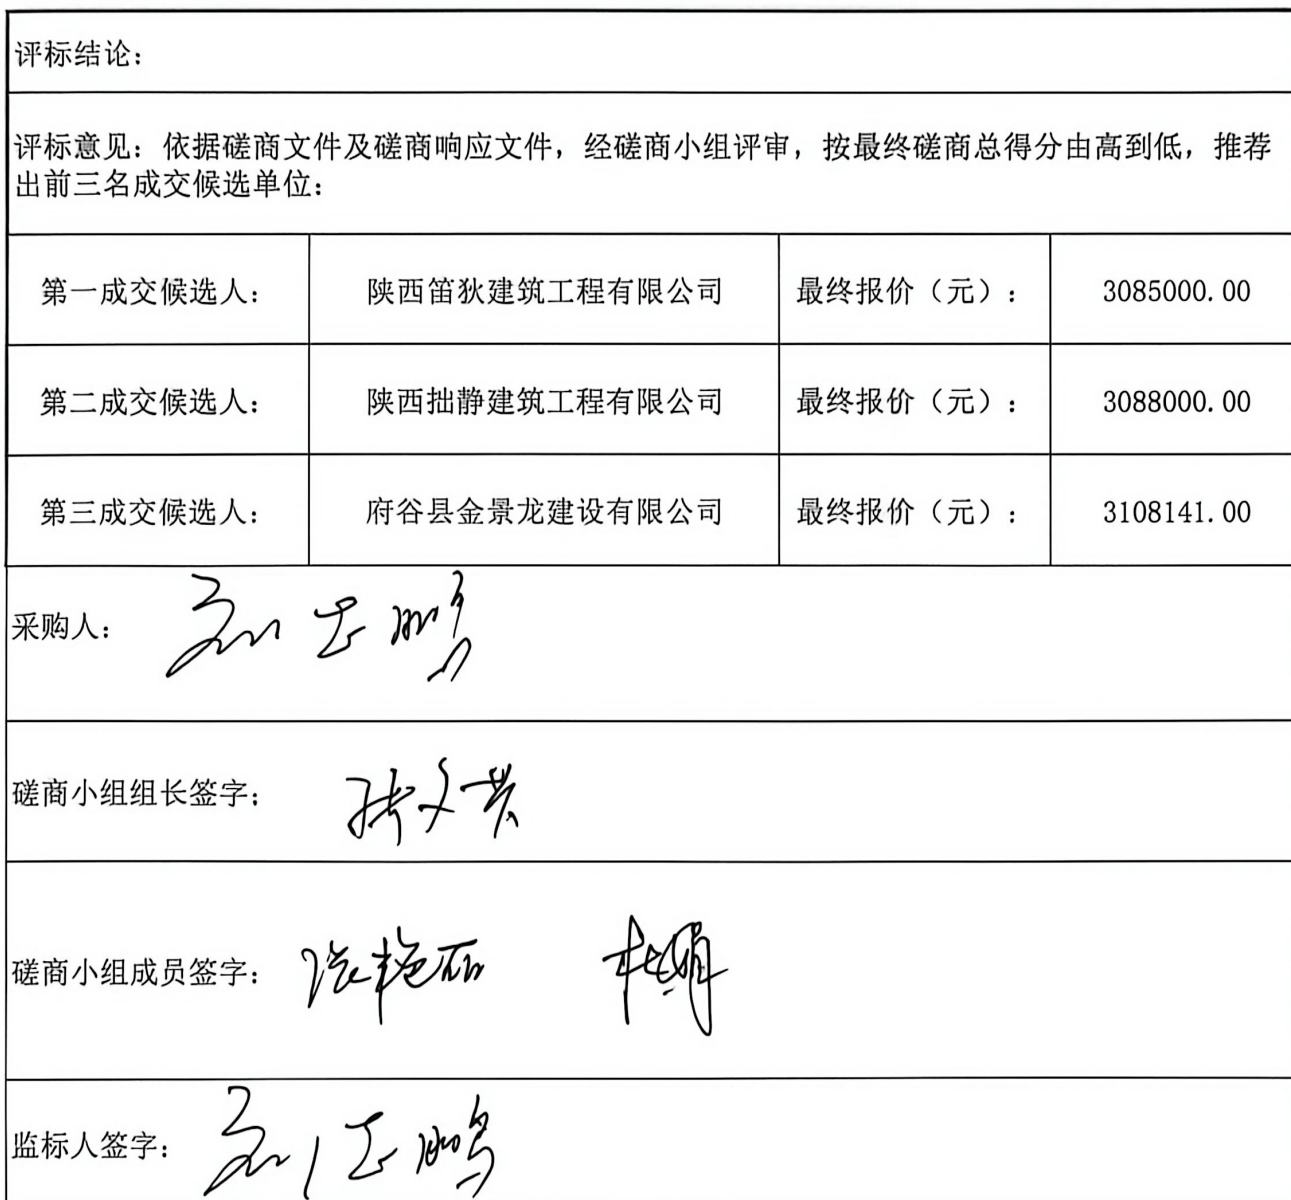 评标结论：
评标意见：依据磋商文件及磋商响应文件，经磋商小组评审，按最终磋商总得分由高到低，推荐
出前三名成交候选单位：
第一成交候选人： 陕西笛狄建筑工程有限公司 最终报价（元）： 3085000.00
第二成交候选人： 陕西拙静建筑工程有限公司 最终报价（元）： 3088000.00
第三成交候选人： 府谷县金景龙建设有限公司 最终报价（元）： 3108141.00
采购人：
磋商小组组长签字：
磋商小组成员签字：
监标人签字：